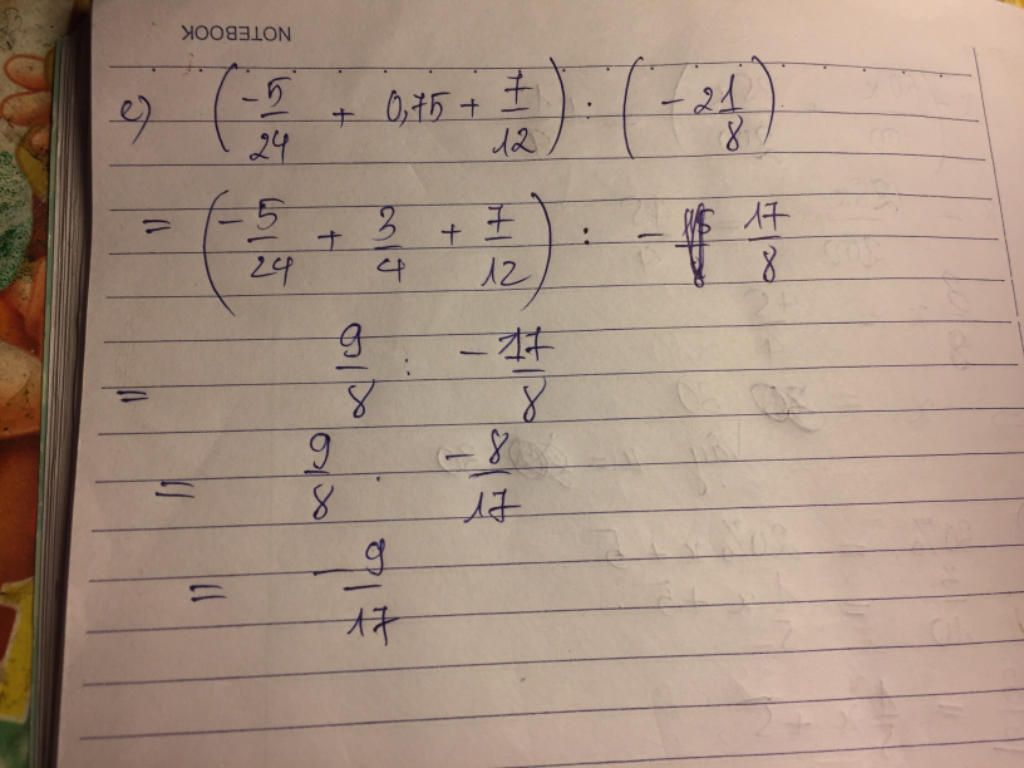 NOTEBOOK
c) (-5/24 + 0,75 + 7/12) : (-2 1/8)
= (-5/24 + 3/4 + 7/12) : - 17/8
= 9/8 : -17/8
= 9/8 . -8/17
= -9/17